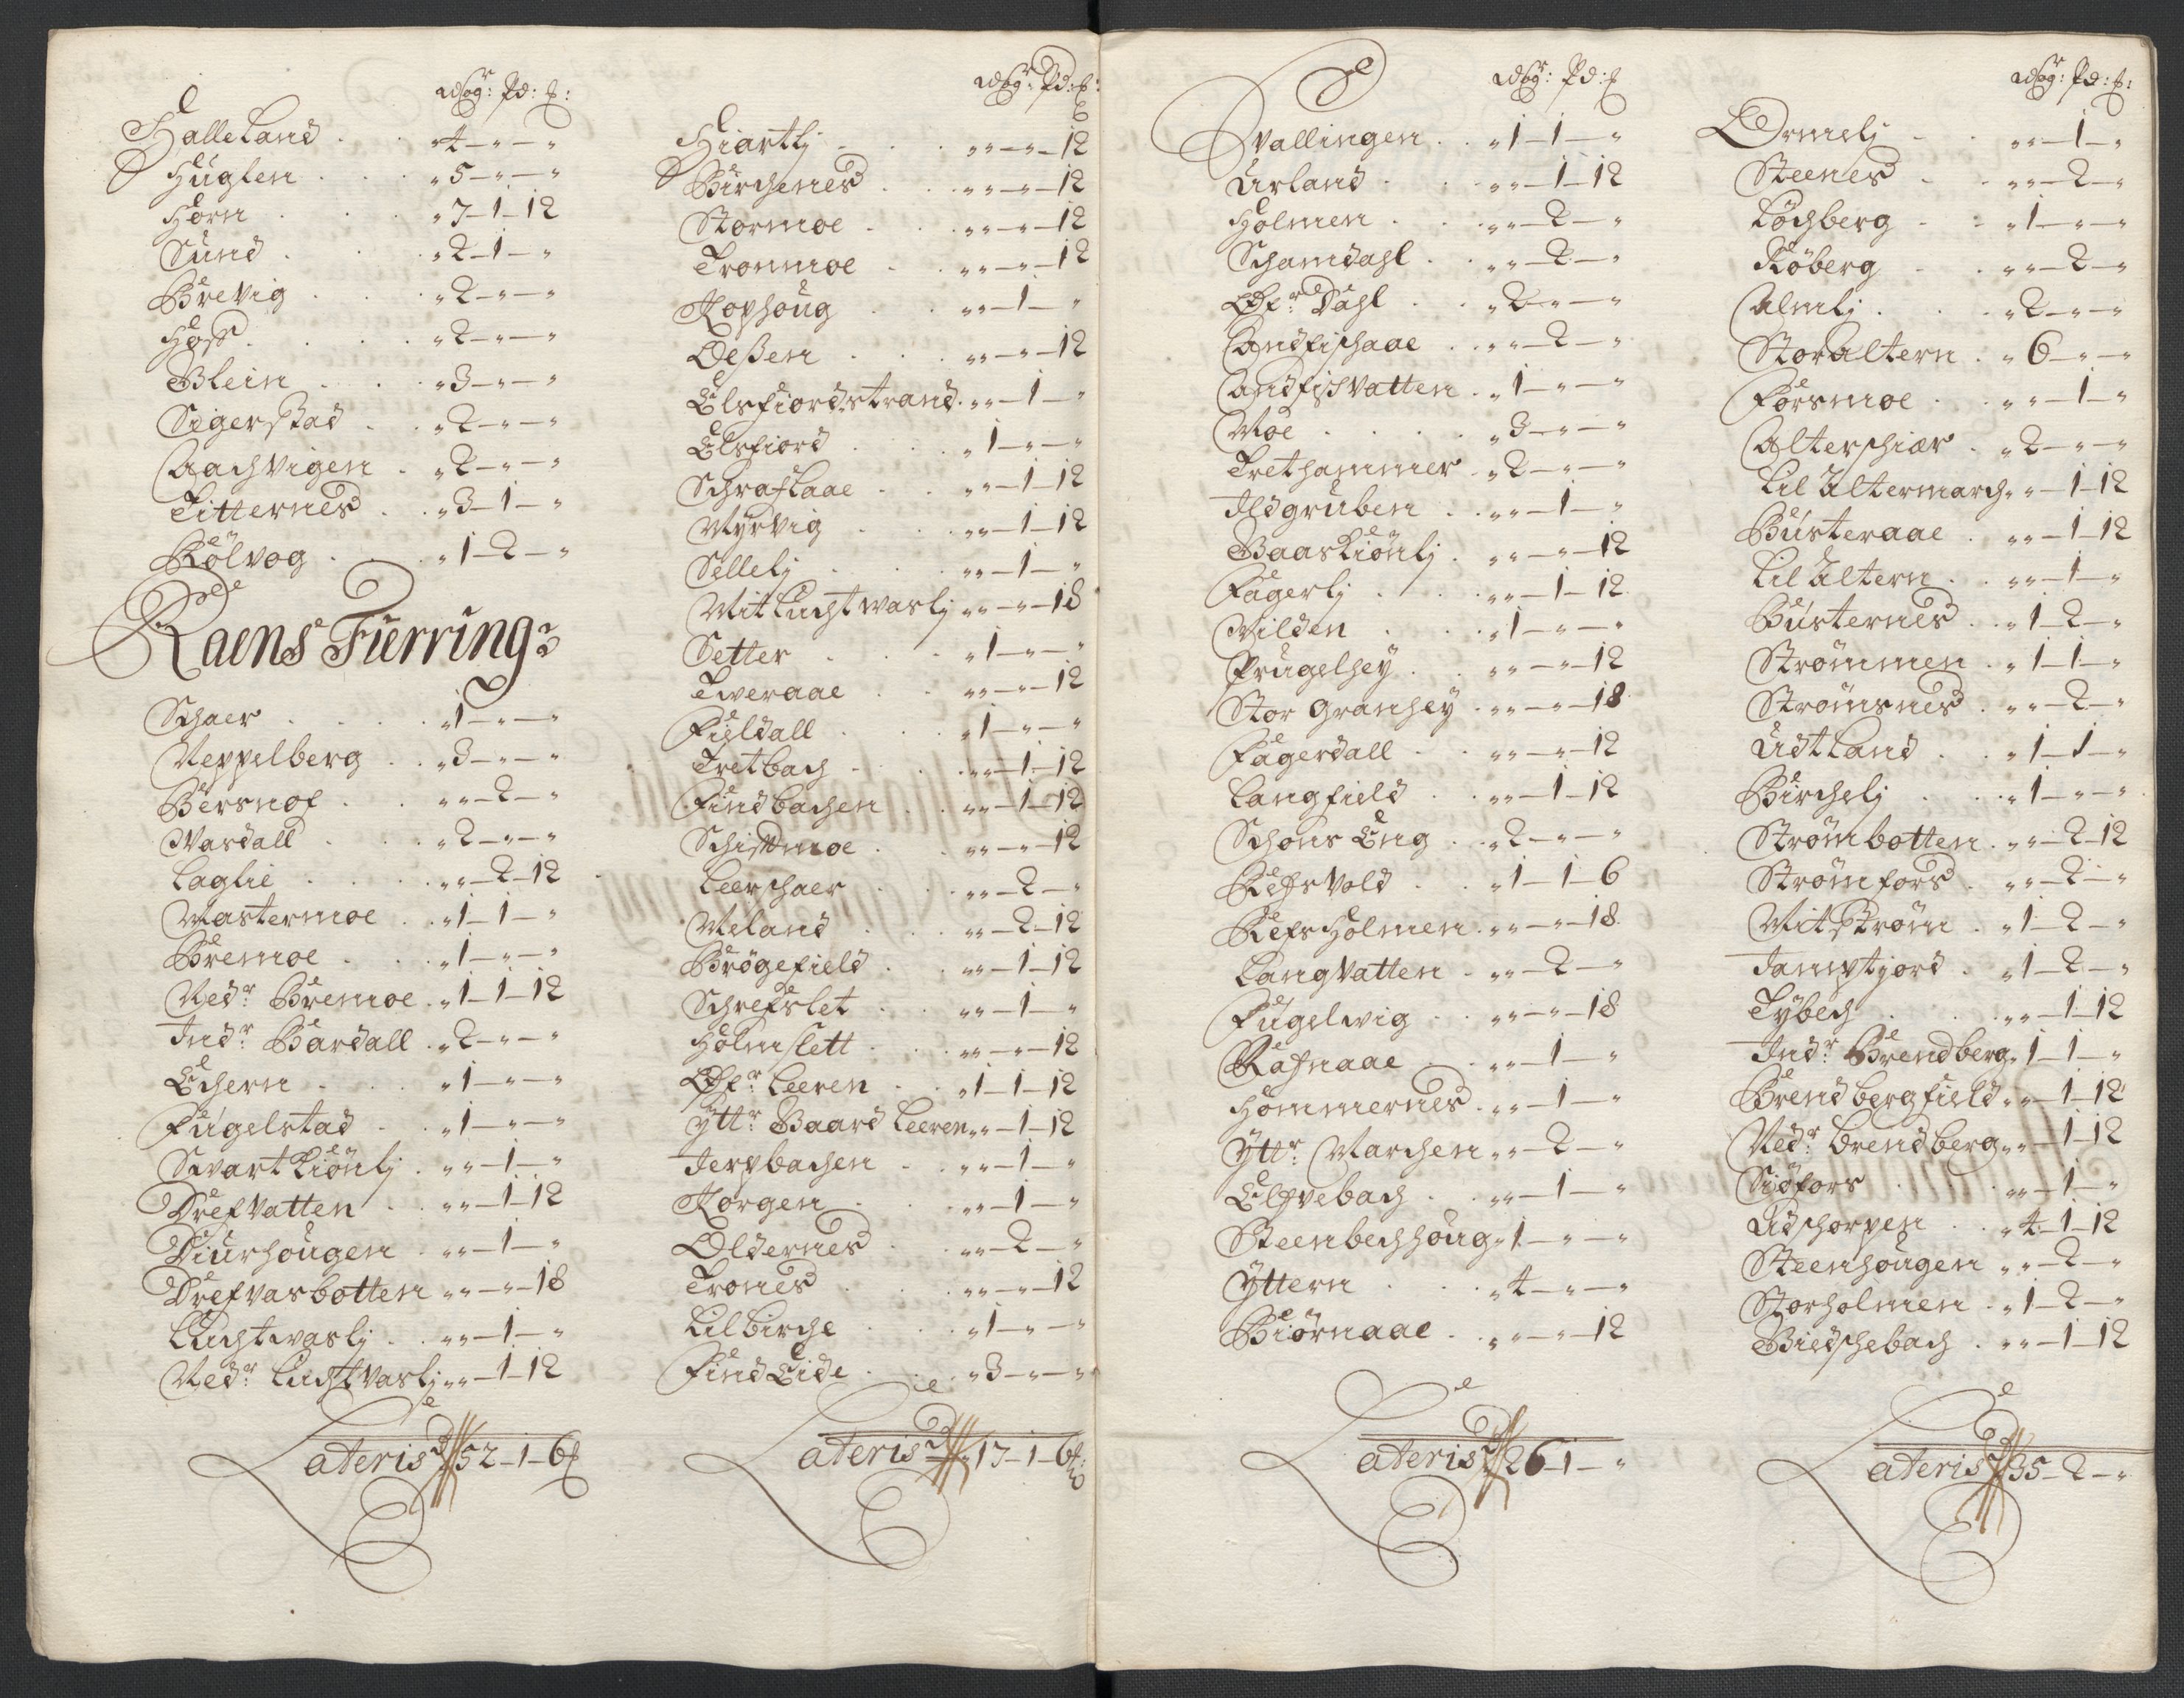 Wog: Pd: ƒ:
Halleland . . „ 4 – „ – „
Huglen . . „ 5 – „ – „
Horn . . „ 7 – 1 – 12
Sund . . „ 2 – 1 – „
Brevig . . „ 2 – „ – „
Høst . . „ 2 – „ – „
Blein . . „ 3 – „ – „
Sigerstad . . „ 2 – „ – „
Aachvigen . „ 2 – „ – „
Titternes . . „ 3 – 1 – „
Kølvog . . „ 1 – 2 – „
Raens Fierring:
Schaer . . „ 1 – „ – „
Neppelberg . . „ 3 – „ – „
Bersnof . . „ „ – 2 – „
Wardall . . „ 2 – „ – „
Laglie . . „ „ – 2 – 12
Mastermoe . . „ 1 – 1 – „
Bremoe . . „ 1 – „ – „
Nedr: Bremoe . „ 1 – 1 – 12
Indr: Bardall . „ 2 – „ – „
Echern . . „ 1 – „ – „
Fugelstad . . „ 1 – „ – „
Svartkiønlj . „ „ – 1 – „
Drefvatten . . „ „ – 1 – 12
Diurhougen . „ „ – 1 – „
Drefvasbotten „ „ – „ – 18
Luchtvaslj . . „ „ – 1 – „
Nedr: Luchtvaslj „ „ – 1 – 12
Lateris 52 – 1 – 6 ƒ
Wog: Pd: ƒ:
Hiartlj . . „ „ – „ – 12
Birchenes . . „ „ – „ – 12
Stormoe . . „ „ – „ – 12
Tronmoe . . „ „ – „ – 12
Kophoug . . „ „ – 1 – „
Oeßen . . „ „ – „ – 12
Elsfiordstrand . „ „ – 1 – „
Elsfiord . . „ 1 – „ – „
Schraflaae . . „ „ – 1 – 12
Myrvig . . „ „ – 1 – 12
Sellelj . . „ „ – 1 – „
Mitluchtwaslj „ „ – „ – 18
Setter . . „ 1 – „ – „
Tweraae . . „ „ – „ – 12
Fieldall . . „ 1 – „ – „
Tretbach . . „ „ – 1 – 12
Findbachen . . „ „ – 1 – 12
Schistmoe . . „ „ – „ – 12
Leerschaer . . „ „ – 2 – „
Meland . . „ „ – 2 – 12
Brøgefield . . „ „ – 1 – 12
Schrefslet . . „ „ – 1 – „
Holmslett . . „ „ – „ – 12
Øfr: Leeren . . „ 1 – 1 – 12
Yttr: Baard Leeren „ „ – 1 – 12
Jerpbachen . . „ „ – 1 – „
Korgen . . „ „ – 1 – „
Oldernes . . „ „ – 2 – „
Trones . . „ „ – „ – 12
Lilbirche . . „ 1 – „ – „
FindEide . . „ 3 – „ – „
Lateris 17 – 1 – 6 ƒ:
Wog: Pd: ƒ
Svallingen . . „ 1 – 1 – „
Urland . . „ „ – 1 – 12
Holmen . . „ „ – 2 – „
Schamdahl . . „ „ – 2 – „
Øfr: Dahl . . „ 2 – „ – „
Andfischaae . . „ „ – 2 – „
Andfischvatten . „ 1 – „ – „
Moe . . „ 3 – „ – „
Trethammer . „ 2 – „ – „
Ildgruben . . „ „ – 1 – „
Baaskiønlj . . „ „ – „ – 12
Fagerlj . . „ „ – 1 – 12
Vilden . . „ 1 – „ – „
Prugelhey . . „ „ – „ – 12
Stor Granhey . „ „ – „ – 18
Fagerdall . . „ „ – „ – 12
Langfield . . „ „ – 1 – 12
Schons Eng . . „ 2 – „ – „
Refsvold . . „ 1 – 1 – 6
Refsholmen . „ „ – „ – 18
Langvatten . „ „ – 2 – „
Fugelwig . . „ „ – „ – 18
Rafnaae . . „ „ – 1 – „
Hommernes . „ „ – 1 – „
Yttr: Marchen „ „ – 2 – „
Elfvebach . . „ „ – 1 – „
Steenbechhoug „ 1 – „ – „
Yttern . . „ 4 – „ – „
Biørnaae . . „ „ – „ – 12
Lateris 26 – 1 – „
Wog: Pd: ƒ:
Ormelj . . „ „ – 1 – „
Steenes . . „ „ – 2 – „
Løchberg . . „ 1 – „ – „
Røberg . . „ „ – 2 – „
Almlj . . „ 2 – „ – „
Storaltern . „ 6 – „ – „
Forsmoe . . „ „ – 1 – „
Alterschiær . „ 2 – „ – „
Lil Altermarch „ „ – 1 – 12
Busteraae . „ „ – 1 – 12
Lil Altern . . „ „ – 1 – „
Busternes . . „ 1 – 2 – „
Strømmen . „ 1 – 1 – „
Strømsnes . „ „ – 2 – „
Udtland . . „ 1 – 1 – „
Birchelj . . „ 1 – „ – „
Strømbotten . „ „ – 2 – 12
Strømfors . „ „ – 2 – „
Mitstrøm . „ 1 – 2 – „
Jamptjord . „ 1 – 2 – „
Tybech . . „ „ – 1 – 12
Indr: Brendberg „ 1 – 1 – „
Brendbergfield „ „ – 1 – 12
Nedr: Brendberg „ „ – 1 – 12
Siøfors . . „ „ – 1 – „
Udschorpen . . „ 4 – 1 – 12
Steenhougen „ „ – 2 – „
Storholmen . „ 1 – 2 – „
Biedschebach . „ „ – 1 – 12
Lateris 35 – 2 – „